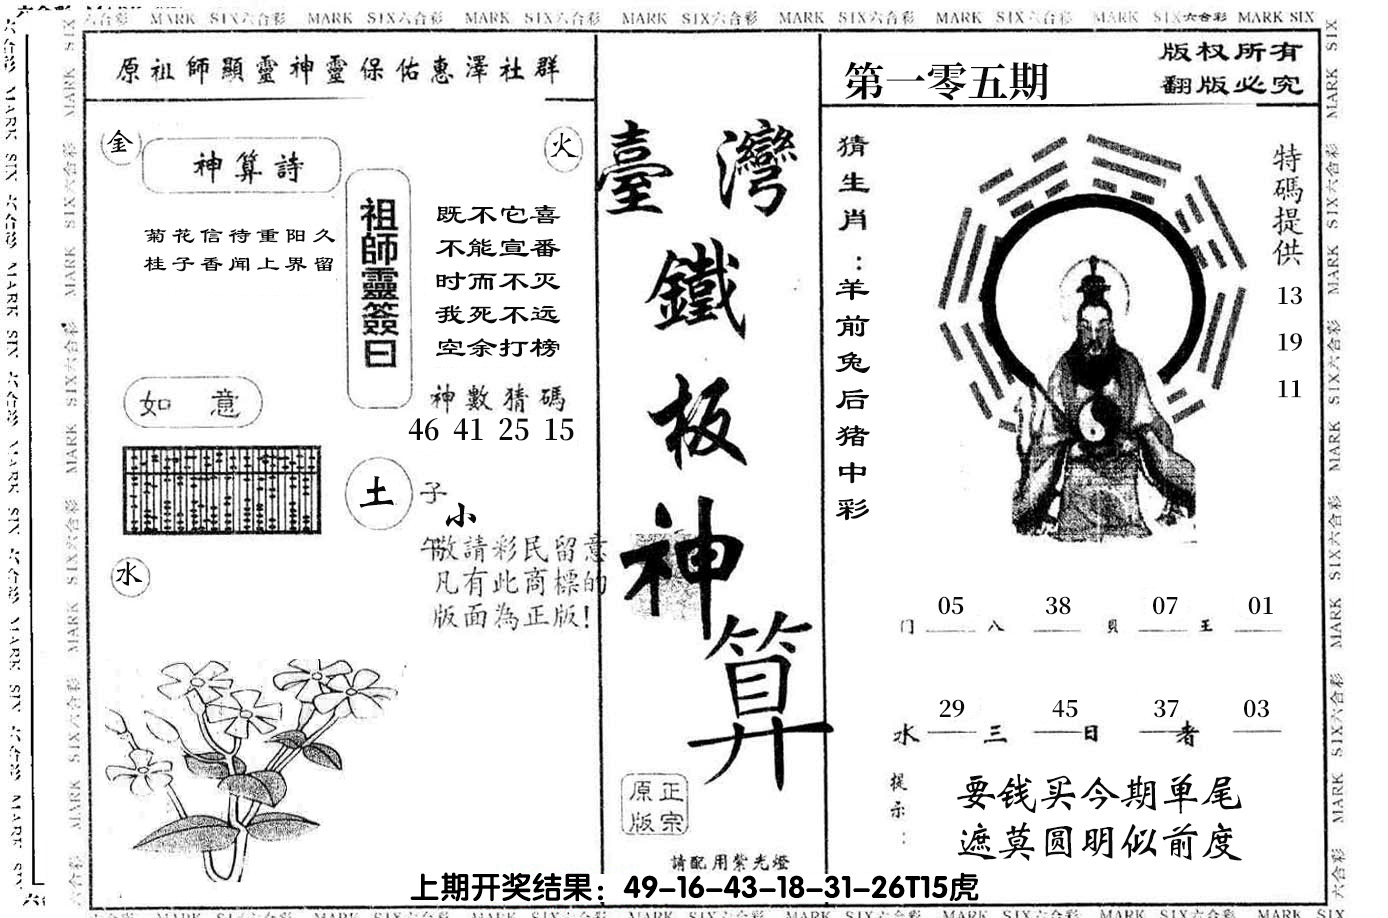 六合彩 MARK SIX六合彩 MARK SIX六合彩 MARK SIX六合彩 MARK SIX六合彩 MARK SIX六合彩 MARK SIX六合彩 MARK SIX六合彩 MARK SIX
原祖師顯靈神靈保佑惠澤社群
金
火
神算詩
菊花信待重阳久
桂子香闻上界留
祖師靈簽曰
既不它喜
不能宣番
时而不灭
我死不远
空余打榜
神數猜碼
46 41 25 15
如意
土
子
小
午
敬請彩民留意
凡有此商標的
版面為正版!
水
臺灣
鐵
板
神
算
原正
版宗
請配用紫光燈
第一零五期
版权所有
翻版必究
猜生肖:羊前兔后猪中彩
特碼提供
13
19
11
05 38 07 01
门 八 貝 王
29 45 37 03
水 三 日 者
提示:
要钱买今期单尾
遮莫圆明似前度
上期开奖结果：49-16-43-18-31-26T15虎